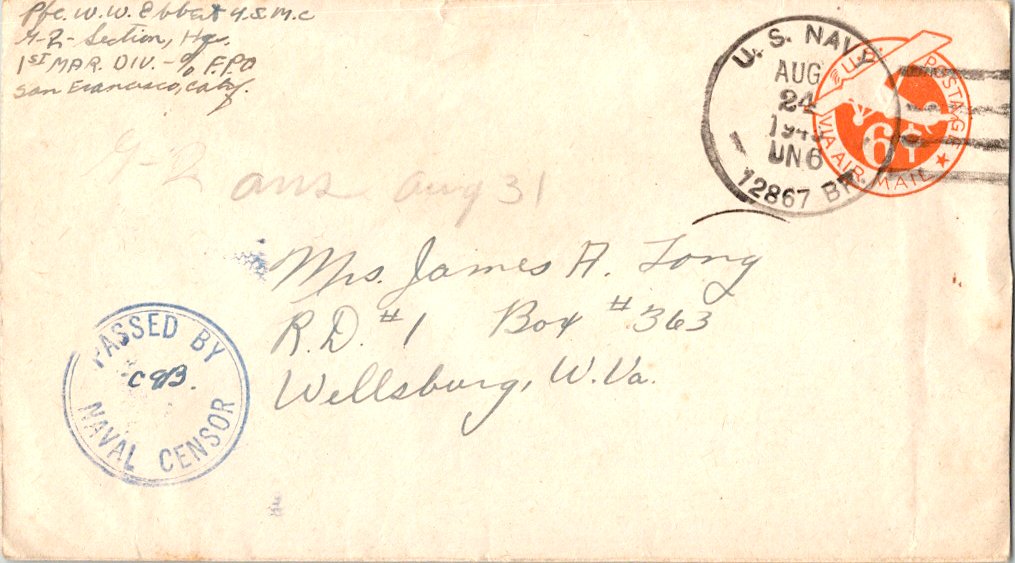 Pfc. W. W. Ebbert U.S.M.C
G-2-Section, Hq.
1ST MAR. DIV. - % F.P.O
San Francisco, Calif.
U. S. NAVY
AUG
24
UN6
12867 BR.
U.S. POSTAGE
6¢
VIA AIR MAIL
G-2 ans Aug 31
Mrs. James A. Long
R.D. #1 Box #363
Wellsburg, W.Va.
PASSED BY
CGB.
NAVAL CENSOR